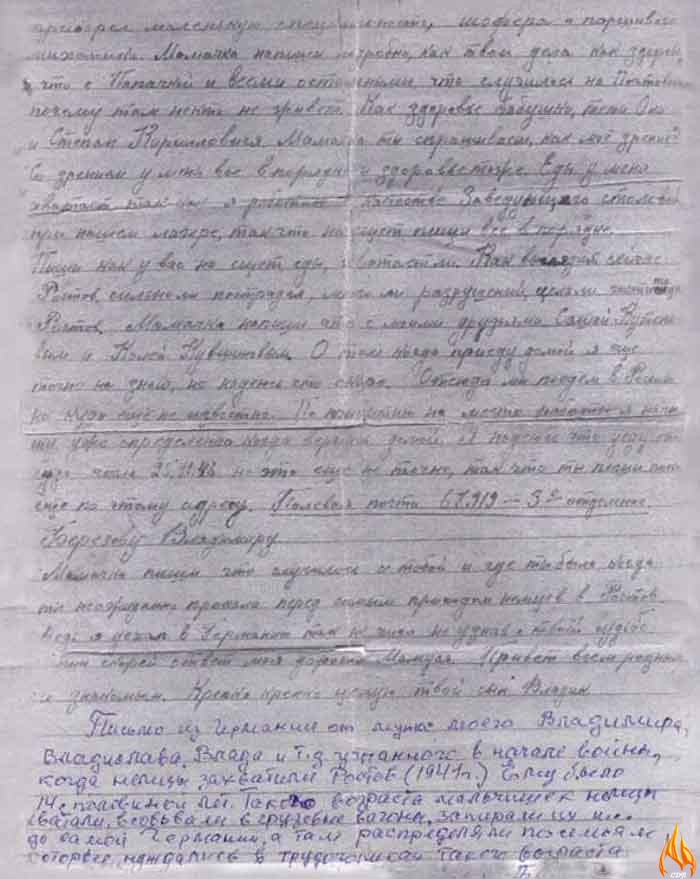 приобрел маленькую специальность, шофера и паршивого
механика. Мамачка напиши подробно, как твои дела как здоровье,
что с Папачкой и всеми остальными, что случилось на
почему там некто не живет. Как здоровье Бабушки, тети Оли
и Степан Кирилловича Мамачка ты спрашиваеш, как моё зрение?
Со зрением у меня все в порядке и здоровье тоже. Еды у меня
хватает так как я работаю в качестве Заведующего столовой
при нашем лагере, так что на счет пищи все в порядке.
Пиши как у вас на счет еды, Как выглядит сейчас
Ростов сильно ли пострадал, много ли разрушений, целы ли
Ростов. Мамачка напиши что с моими друзьями Сашей
и Колей О том когда приеду домой я еще
точно не знаю, но надеюсь что скоро. Отсюда мы поедем в Россию
но куда еще не известно. По приезде на место
уже определенно когда вернусь домой. Я надеюсь что уеду от
сюда числа 25. но это еще не точно, так что ты пиши пока
еще по этому адресу. Полевая почта 67919 — 3е отделение.
Березову Владимиру
Мамачка пиши что случилось с тобой и где ты была когда
ты неожиданно пропала перед самым приходом немцев в Ростов
ведь я уехал в Германию так не чего не узнав о твоей судьбе
скорей ответ моя дорогая Мамуля. Привет всем родным
и знакомым. Крепко крепко целую твой сын Владик
Письмо из Германии от мужа моего Владимира,
Владислава, Влада и т.д. угнанного в начале войны,
когда немцы захватили Ростов (1941г.) Ему было
14 с половиной лет. Такого возраста мальчишек немцы
хватали, всовывали в грузовые вагоны, запирали их и
до самой Германии, а там распределяли по семьям
которые нуждались в такого возраста
CDP